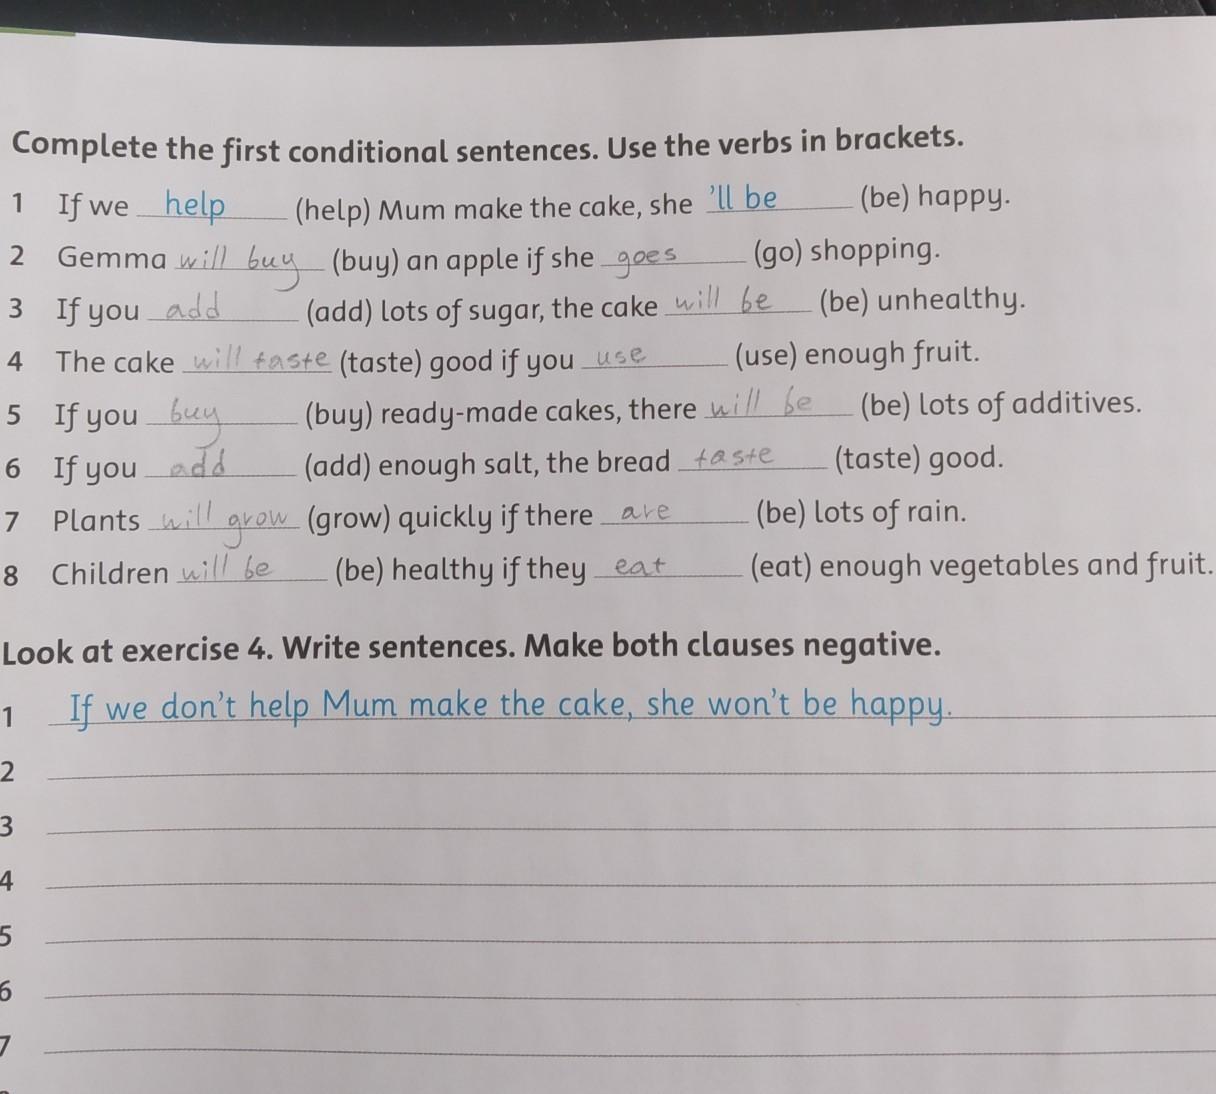 Complete the first conditional sentences. Use the verbs in brackets.
1 If we help (help) Mum make the cake, she 'll be (be) happy.
2 Gemma will buy (buy) an apple if she goes (go) shopping.
3 If you add (add) lots of sugar, the cake will be (be) unhealthy.
4 The cake will taste (taste) good if you use (use) enough fruit.
5 If you buy (buy) ready-made cakes, there will be (be) lots of additives.
6 If you add (add) enough salt, the bread taste (taste) good.
7 Plants will grow (grow) quickly if there are (be) lots of rain.
8 Children will be (be) healthy if they eat (eat) enough vegetables and fruit.
Look at exercise 4. Write sentences. Make both clauses negative.
1 If we don't help Mum make the cake, she won't be happy.
2
3
4
5
6
7